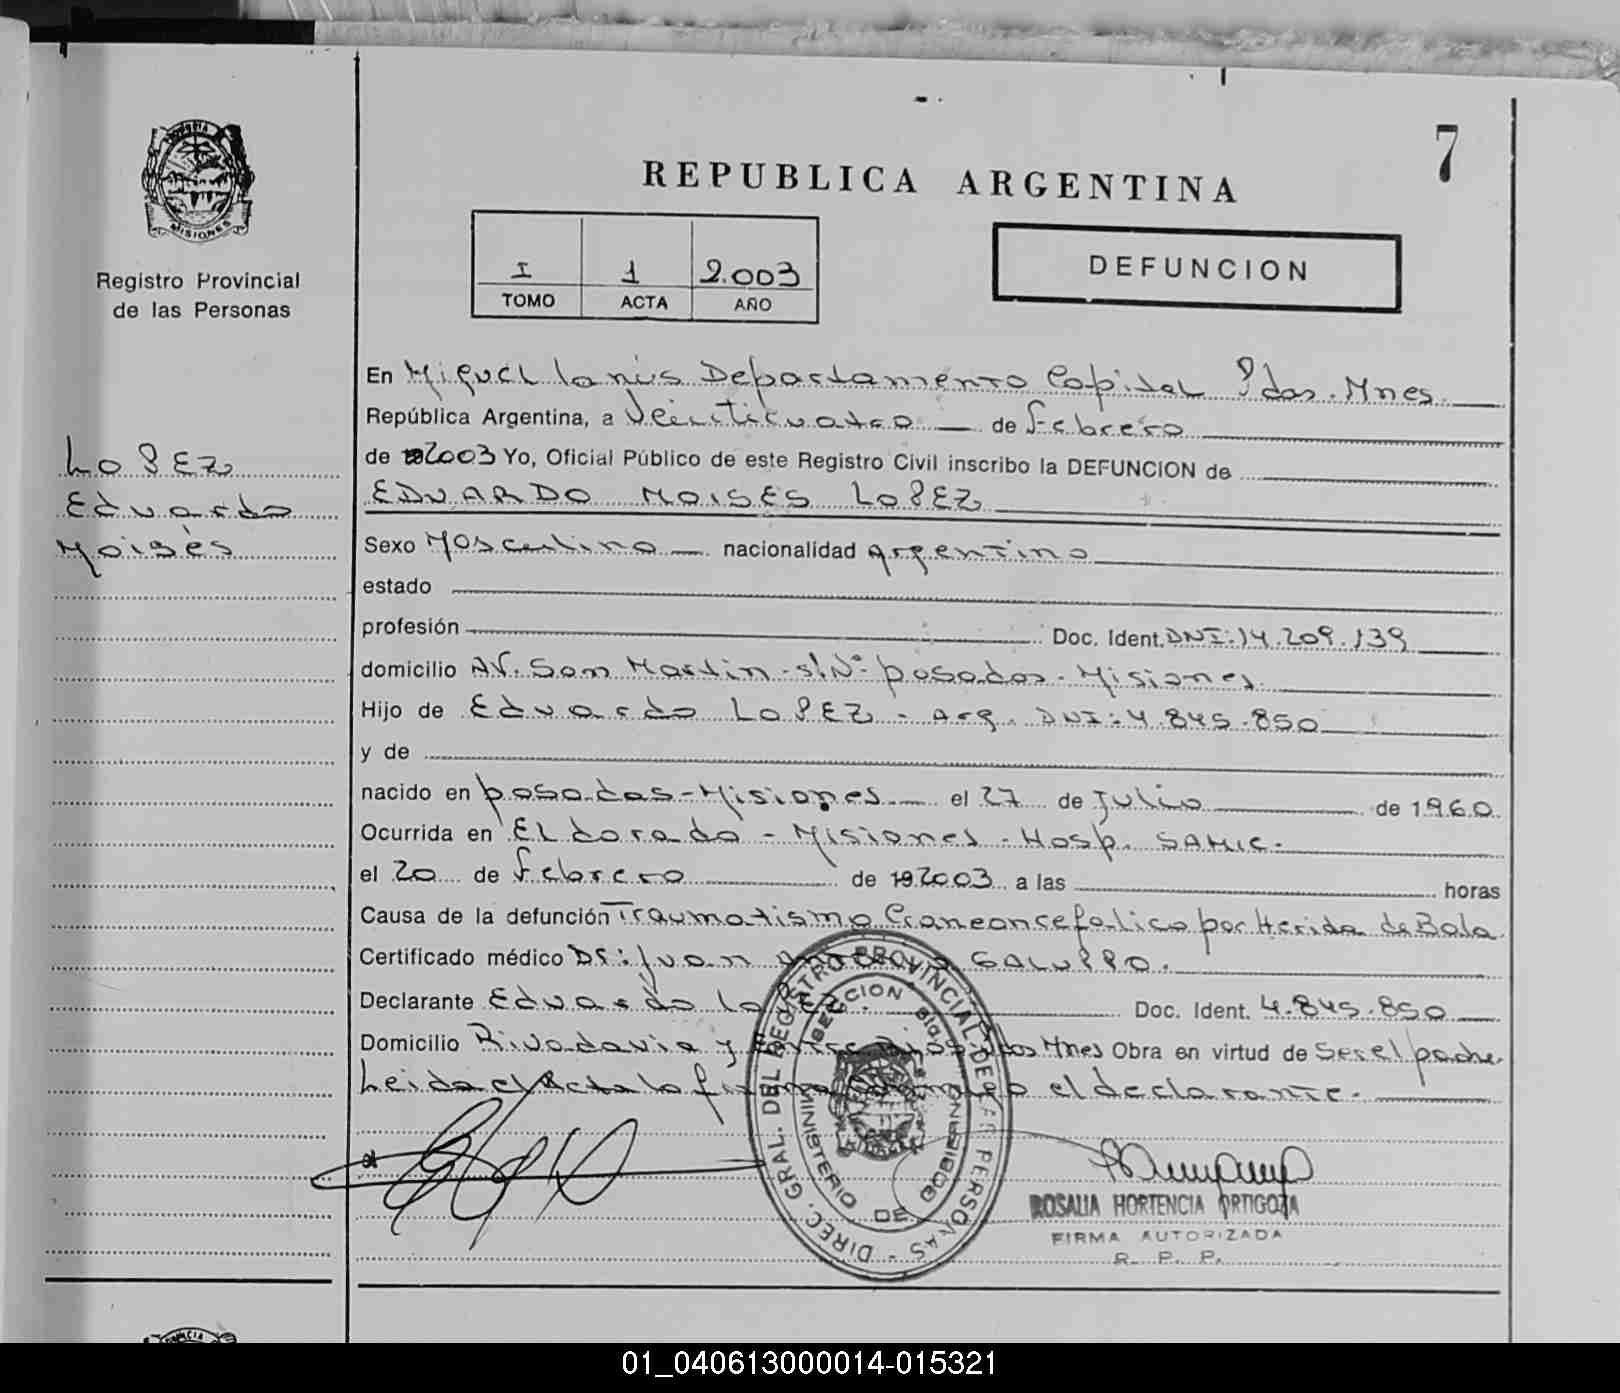 7
REPUBLICA ARGENTINA
PROVINCIA
MISIONES
Registro Provincial
de las Personas
I 1 2.003
TOMO ACTA AÑO
DEFUNCION
En Miguel Lanús Departamento Capital Pdas. Mnes.
República Argentina, a Veinticuatro de Febrero
de 2003 Yo, Oficial Público de este Registro Civil inscribo la DEFUNCION de
LOPEZ
Eduardo
Moisés
EDUARDO MOISES LOPEZ
Sexo Masculino nacionalidad argentino
estado
profesión Doc. Ident. DNI: 14.209.139
domicilio AV. San Martin - s/Nº posadas - Misiones
Hijo de Eduardo LOPEZ - Arg. DNI: 4.845.850
y de
nacido en posadas - Misiones el 27 de Julio de 1960
Ocurrida en ELdorado - Misiones - Hosp. SAMIC.
el 20 de Febrero de 192003 a las horas
Causa de la defunción Traumatismo Craneoncefalico por Herida de Bala
Certificado médico Dr: Juan GALUPPO.
Declarante Eduardo LOPEZ. Doc. Ident. 4.845.850
Domicilio Rivadavia y Entre Rios Pdas Mnes Obra en virtud de Ser el padre
Leida el Acta la firma conmigo el declarante.
DIREC. GRAL. DEL REGISTRO PROVINCIAL DE LAS PERSONAS
SECCION
MINISTERIO DE GOBIERNO
ROSALIA HORTENCIA ORTIGOZA
FIRMA AUTORIZADA
R. P. P.
01_040613000014-015321